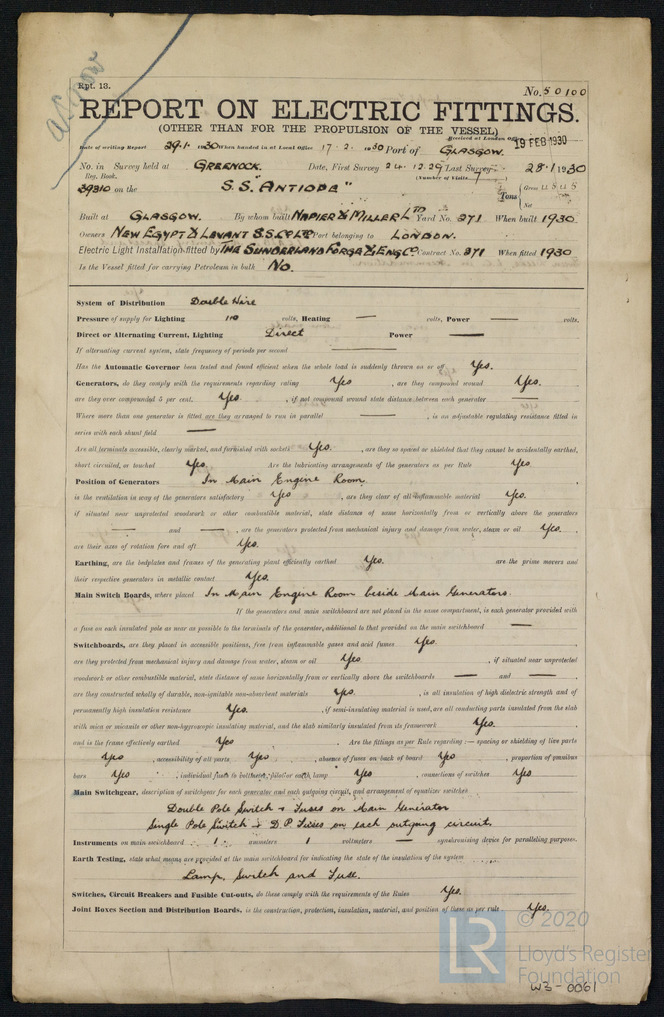 Rpt. 13.
No. 50100
REPORT ON ELECTRIC FITTINGS.
(OTHER THAN FOR THE PROPULSION OF THE VESSEL)
Received at London Office 19 FEB 1930
Date of writing Report 29.1.1930 When handed in at Local Office 17.2.1930 Port of GLASGOW.
No. in Survey held at GREENOCK. Date, First Survey 24.12.29 Last Survey 28.1.1930
Reg. Book. (Number of Visits 7
39310 on the S.S. "ANTIOPE" Tons
Built at GLASGOW. By whom built NAPIER & MILLER LTD Yard No. 271 When built 1930.
Owners NEW EGYPT & LEVANT S.S. CO LTD Port belonging to LONDON.
Electric Light Installation fitted by THE SUNDERLAND FORGE & ENG. CO. Contract No. 271 When fitted 1930
Is the Vessel fitted for carrying Petroleum in bulk No.
System of Distribution Double Wire
Pressure of supply for Lighting 110 volts, Heating — volts, Power — volts.
Direct or Alternating Current, Lighting Direct Power —
If alternating current system, state frequency of periods per second —
Has the Automatic Governor been tested and found efficient when the whole load is suddenly thrown on or off Yes.
Generators, do they comply with the requirements regarding rating Yes , are they compound wound Yes.
are they over compounded 5 per cent. Yes. , if not compound wound state distance between each generator —
Where more than one generator is fitted are they arranged to run in parallel — , is an adjustable regulating resistance fitted in
series with each shunt field —
Are all terminals accessible, clearly marked, and furnished with sockets Yes. , are they so spaced or shielded that they cannot be accidentally earthed,
short circuited, or touched Yes. Are the lubricating arrangements of the generators as per Rule Yes
Position of Generators In Main Engine Room.
is the ventilation in way of the generators satisfactory Yes , are they clear of all inflammable material Yes.
if situated near unprotected woodwork or other combustible material, state distance of same horizontally from or vertically above the generators
— and — , are the generators protected from mechanical injury and damage from water, steam or oil Yes.
are their axes of rotation fore and aft Yes.
Earthing, are the bedplates and frames of the generating plant efficiently earthed Yes. are the prime movers and
their respective generators in metallic contact Yes.
Main Switch Boards, where placed In Main Engine Room beside Main Generators.
If the generators and main switchboard are not placed in the same compartment, is each generator provided with
a fuse on each insulated pole as near as possible to the terminals of the generator, additional to that provided on the main switchboard —
Switchboards, are they placed in accessible positions, free from inflammable gases and acid fumes Yes.
are they protected from mechanical injury and damage from water, steam or oil Yes , if situated near unprotected
woodwork or other combustible material, state distance of same horizontally from or vertically above the switchboards — and —
are they constructed wholly of durable, non-ignitable non-absorbent materials Yes. , is all insulation of high dielectric strength and of
permanently high insulation resistance Yes. , if semi-insulating material is used, are all conducting parts insulated from the slab
with mica or micanite or other non-hygroscopic insulating material, and the slab similarly insulated from its framework Yes.
and is the frame effectively earthed Yes . Are the fittings as per Rule regarding :— spacing or shielding of live parts
Yes , accessibility of all parts Yes , absence of fuses on back of board Yes , proportion of omnibus
bars Yes , individual fuses to voltmeter, pilot or earth lamp Yes , connections of switches Yes
Main Switchgear, description of switchgear for each generator and each outgoing circuit, and arrangement of equaliser switches
Double Pole Switch & Fuses on Main Generator
Single Pole Switch & D.P. Fuses on each outgoing circuit.
Instruments on main switchboard 1 ammeters 1 voltmeters — synchronising device for paralleling purposes.
Earth Testing, state what means are provided at the main switchboard for indicating the state of the insulation of the system
Lamp, Switch and Fuse.
Switches, Circuit Breakers and Fusible Cut-outs, do these comply with the requirements of the Rules Yes.
Joint Boxes Section and Distribution Boards, is the construction, protection, insulation, material, and position of these as per rule Yes.
LR © 2020
Lloyd's Register
Foundation
W3-0061